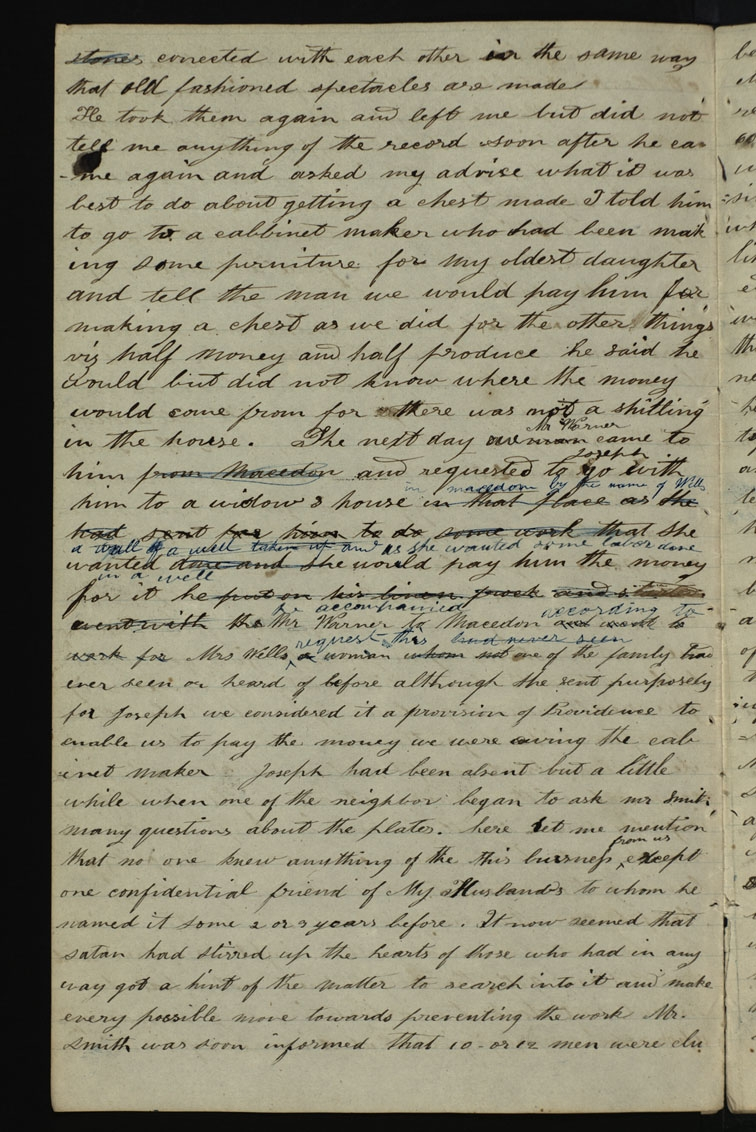 stones conected with each other in the same way
that old fashioned spectacles are made
He took them again and left me but did not
tell me anything of the record soon after he ca-
-me again and asked my advise what it was
best to do about getting a chest made I told him
to go to a cabbinet maker who had been mak
ing some furniture for my oldest daughter
and tell the man we would pay him for
making a chest as we did for the other things
viz half money and half produce he said he
would but did not know where the money
would come from for there was not a shilling
Mr Warner
in the house. The next day a man came to
Joseph
him from Macedon and requested to go with
in macedon by the name of Wells
him to a widow's house in that place as she
had sent for him to do some work that she
a wall of a well taken up and as she wanted some labor done
wanted done and she would pay him the money
in a well
for it he put on his linen frock and
he accompanied according to
went with the Mr Warner to Macedon and went to
request this had never seen
work for Mrs Wells a woman whom not one of the family had
ever seen or heard of before although she sent purposely
for Joseph we considered it a provision of Providence to
enable us to pay the money we were owing the cab
inet maker Joseph had been absent but a little
while when one of the neighbor began to ask mr Smith
many questions about the plates. here let me mention
from us
that no one knew anything of the this buisness except
one confidential friend of My Husband's to whom he
named it some 2 or 3 years before. It now seemed that
satan had stirred up the hearts of those who had in any
way got a hint of the matter to search into it and make
every possible move towards preventing the work Mr.
Smith was soon informed that 10 or 12 men were clu